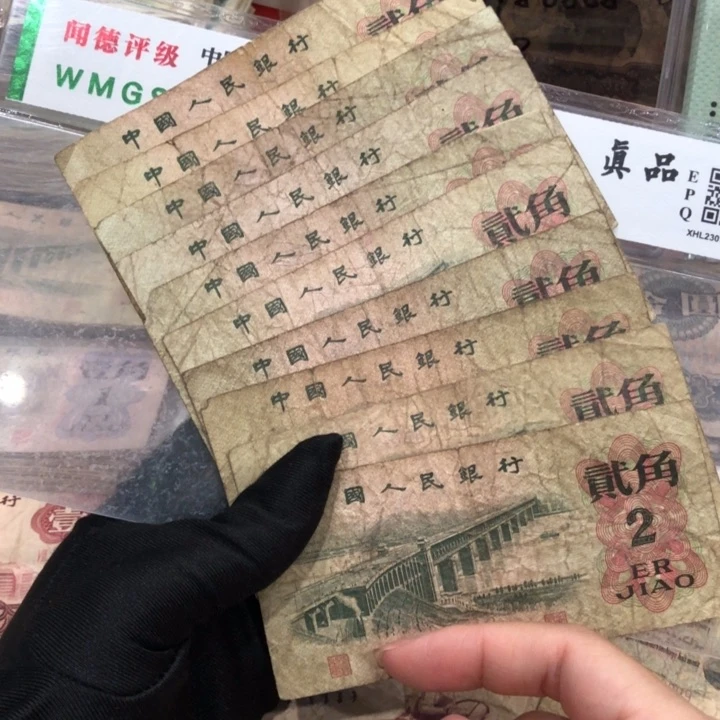 闻德评级
WMGS
眞品
E
P
Q
XHL230
中國人民銀行
貳角
中國人民銀行
中國人民銀行
貳角
中國人民銀行
中國人民銀行
中國人民銀行
貳角
中國人民銀行
貳角
中國人民銀行
貳角
國人民銀行
貳角
國人民銀行
貳角
2
ER
JIAO